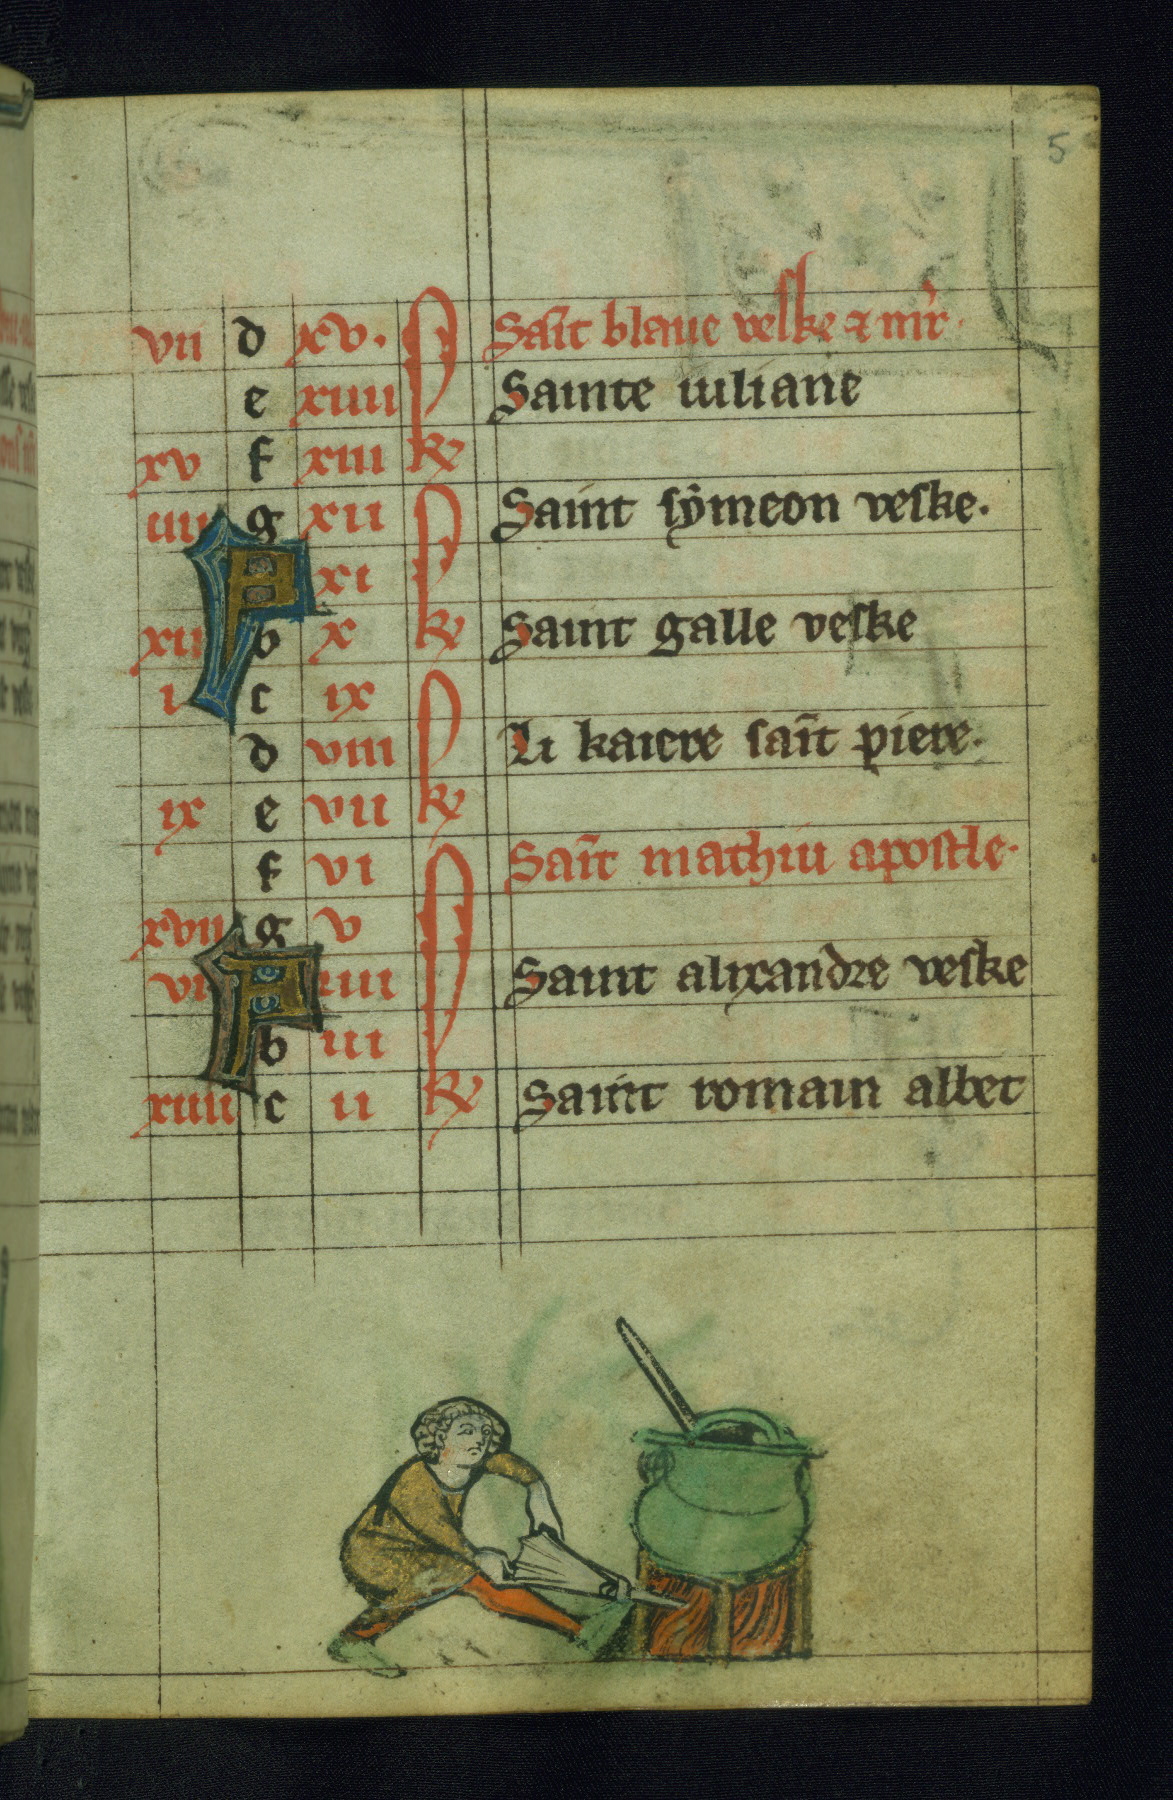 5
vii d xv. Sait blaue veske & mr.
e xiiii Sainte iuliane
xv f xiii kł
iiii g xii Saint symeon veske.
A xi
xii b x kł Saint galle veske
i c ix
d viii Li kaiere sait piere.
ix e vii kł
f vi Sait mathiu apostle.
xvii g v
vi A iiii Saint alixandre veske
b iii
xiiii c ii kł Saint romain albet